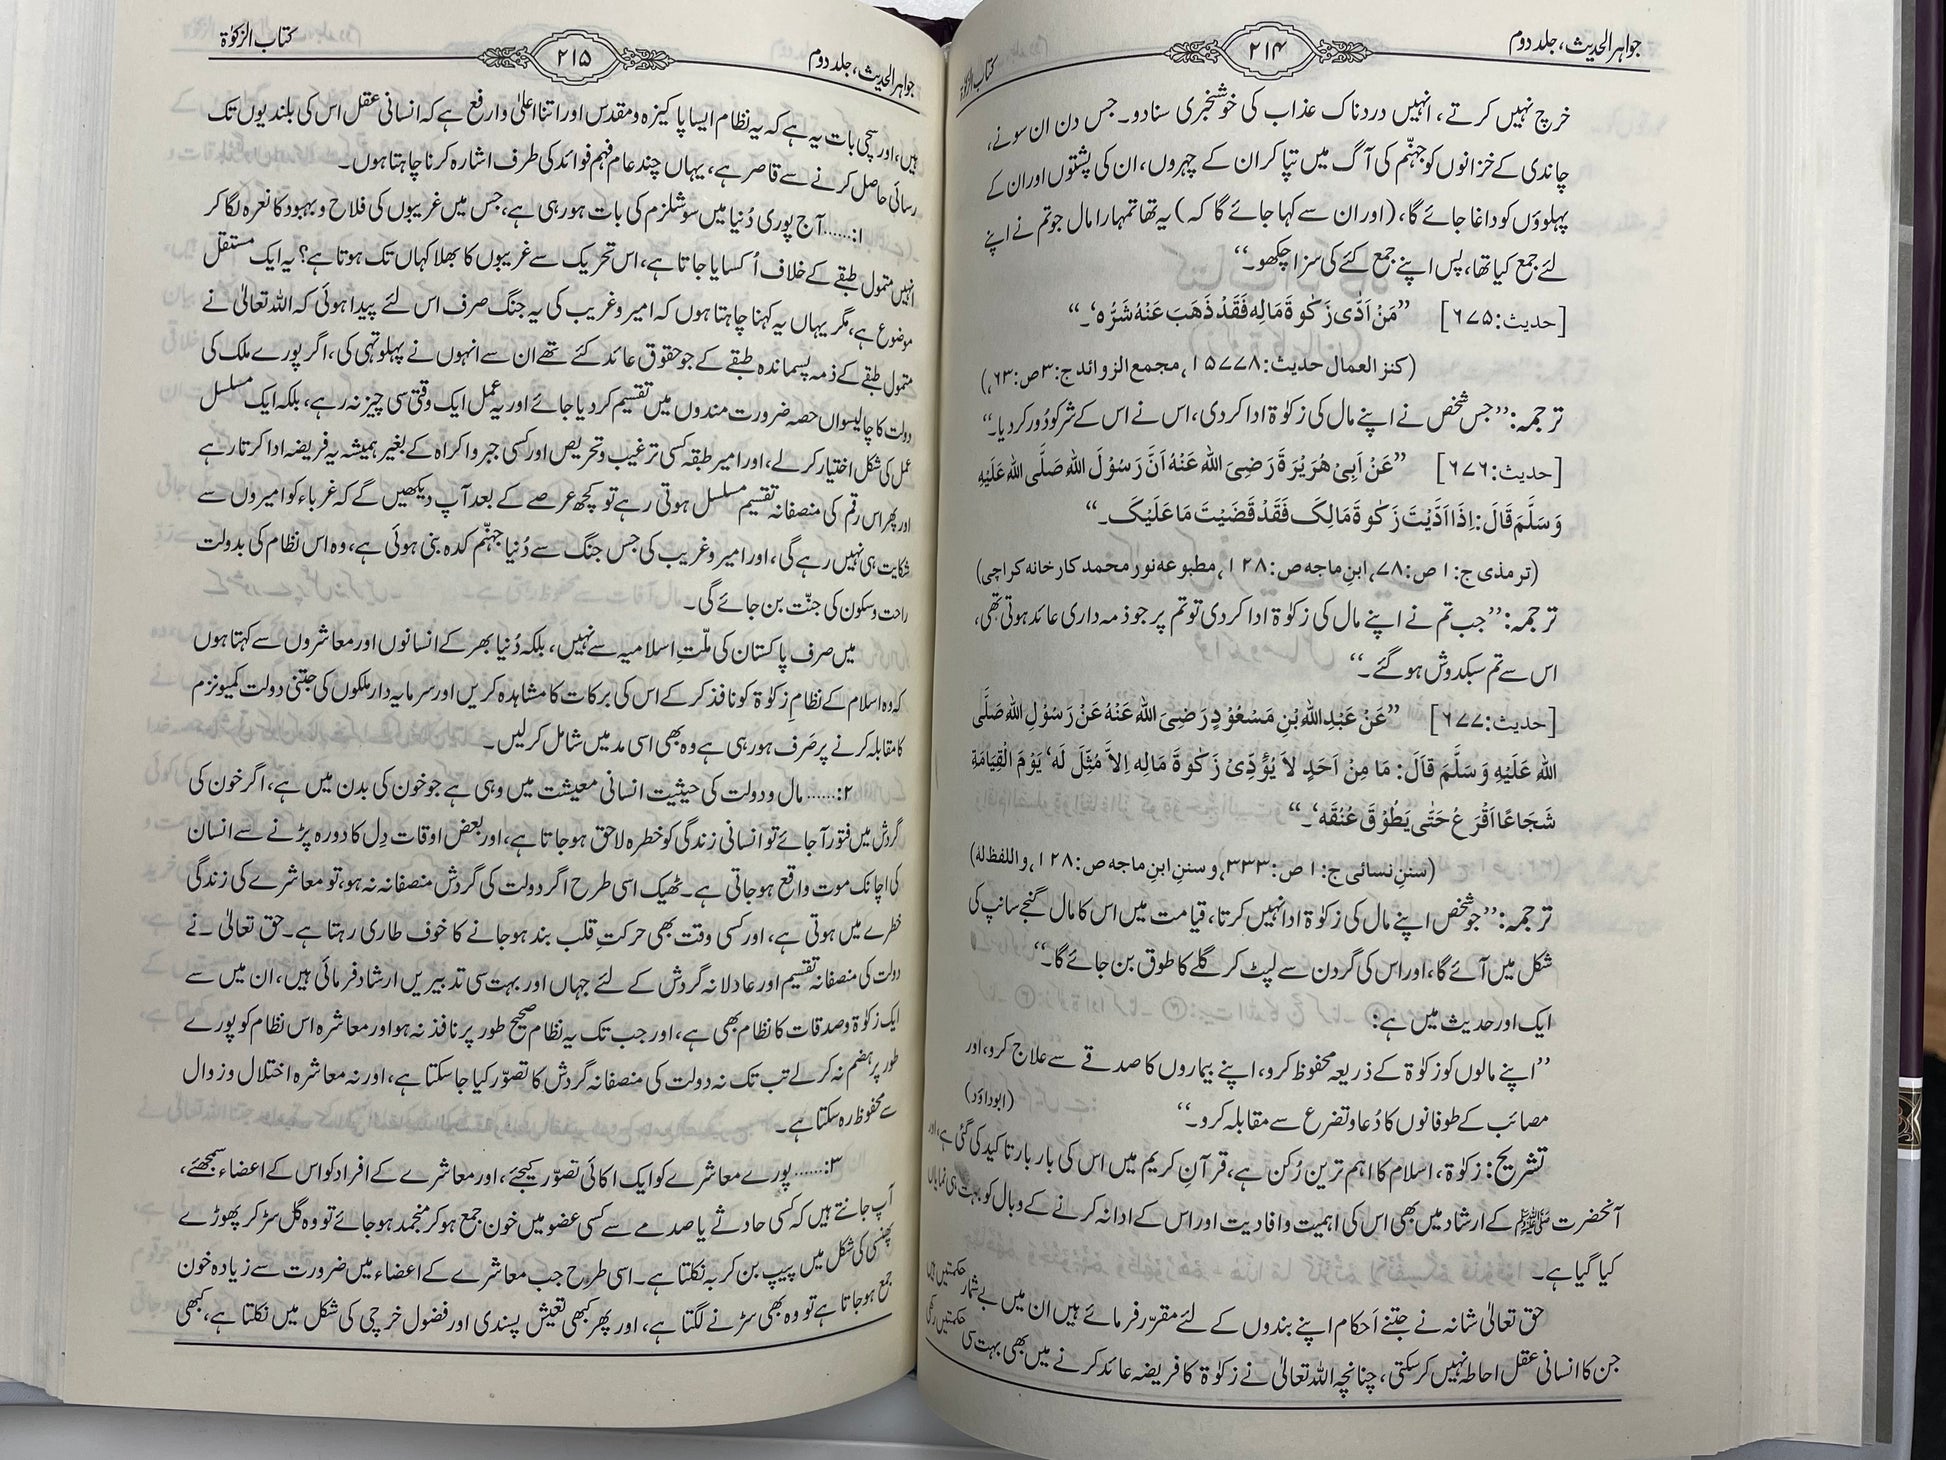 جواہر الحدیث، جلد دوم
۲۱۴
کتاب الزکوٰۃ
خرچ نہیں کرتے، انہیں دردناک عذاب کی خوشخبری سنادو۔ جس دن ان سونے،
چاندی کے خزانوں کو جہنّم کی آگ میں تپا کر ان کے چہروں، ان کی پشتوں اور ان کے
پہلوؤں کو داغا جائے گا، (اور ان سے کہا جائے گا کہ) یہ تھا تمہارا مال جو تم نے اپنے
لئے جمع کیا تھا، پس اپنے جمع کئے کی سزا چکھو۔“
[حدیث:۶۷۵] ”مَنْ اَدّٰی زَکٰوۃَ مَالِہٖ فَقَدْ ذَھَبَ عَنْہُ شَرُّہٗ۔“
(کنز العمال حدیث:۱۵۷۷۸، مجمع الزوائد ج:۳ ص:۶۳،)
ترجمہ: ”جس شخص نے اپنے مال کی زکوٰۃ ادا کردی، اس نے اس کے شر کو دُور کردیا۔“
[حدیث:۶۷۶] ”عَنْ اَبِیْ ھُرَیْرَۃَ رَضِیَ اللہُ عَنْہُ اَنَّ رَسُوْلَ اللہِ صَلَّی اللہُ عَلَیْہِ
وَسَلَّمَ قَالَ: اِذَا اَدَّیْتَ زَکٰوۃَ مَالِکَ فَقَدْ قَضَیْتَ مَا عَلَیْکَ۔“
(ترمذی ج:۱ ص:۷۸، ابنِ ماجہ ص:۱۲۸، مطبوعہ نور محمد کارخانہ کراچی)
ترجمہ: ”جب تم نے اپنے مال کی زکوٰۃ ادا کردی تو تم پر جو ذمہ داری عائد ہوتی تھی،
اس سے تم سبکدوش ہوگئے۔“
[حدیث:۶۷۷] ”عَنْ عَبْدِ اللہِ بْنِ مَسْعُوْدٍ رَضِیَ اللہُ عَنْہُ عَنْ رَسُوْلِ اللہِ صَلَّی
اللہُ عَلَیْہِ وَسَلَّمَ قَالَ: مَا مِنْ اَحَدٍ لَا یُؤَدِّیْ زَکٰوۃَ مَالِہٖ اِلَّا مُثِّلَ لَہٗ یَوْمَ الْقِیَامَۃِ
شَجَاعًا اَقْرَعُ حَتّٰی یَطُوْقَ عُنُقَہٗ۔“
(سننِ نسائی ج:۱ ص:۳۳۳، و سننِ ابنِ ماجہ ص:۱۲۸، واللفظ لہٗ)
ترجمہ: ”جو شخص اپنے مال کی زکوٰۃ ادا نہیں کرتا، قیامت میں اس کا مال گنجے سانپ کی
شکل میں آئے گا، اور اس کی گردن سے لپٹ کر گلے کا طوق بن جائے گا۔“
ایک اور حدیث میں ہے:
”اپنے مالوں کو زکوٰۃ کے ذریعہ محفوظ کرو، اپنے بیماروں کا صدقے سے علاج کرو، اور
مصائب کے طوفانوں کا دُعا و تضرع سے مقابلہ کرو۔“ (ابوداؤد)
تشریح: زکوٰۃ، اسلام کا اہم ترین رُکن ہے، قرآنِ کریم میں اس کی بار بار تاکید کی گئی ہے، اور
آنحضرت ﷺ کے ارشاد میں بھی اس کی اہمیت و افادیت اور اس کے ادا نہ کرنے کے وبال کو بہت ہی نمایاں
کیا گیا ہے۔
حق تعالیٰ شانہ نے جتنے اَحکام اپنے بندوں کے لئے مقرّر فرمائے ہیں ان میں بے شمار حکمتیں ہیں
جن کا انسانی عقل احاطہ نہیں کرسکتی، چنانچہ اللہ تعالیٰ نے زکوٰۃ کا فریضہ عائد کرنے میں بھی بہت سی حکمتیں رکھی
جواہر الحدیث، جلد دوم
۲۱۵
کتاب الزکوٰۃ
ہیں، اور سچی بات یہ ہے کہ یہ نظام ایسا پاکیزہ و مقدس اور اتنا اعلیٰ وارفع ہے کہ انسانی عقل اس کی بلندیوں تک
رسائی حاصل کرنے سے قاصر ہے، یہاں چند عام فہم فوائد کی طرف اشارہ کرنا چاہتا ہوں۔
۱:......آج پوری دُنیا میں سوشلزم کی بات ہو رہی ہے، جس میں غریبوں کی فلاح و بہبود کا نعرہ لگا کر
انہیں متمول طبقے کے خلاف اُکسایا جاتا ہے، اس تحریک سے غریبوں کا بھلا کہاں تک ہوتا ہے؟ یہ ایک مستقل
موضوع ہے، مگر یہاں یہ کہنا چاہتا ہوں کہ امیر و غریب کی یہ جنگ صرف اس لئے پیدا ہوئی کہ اللہ تعالیٰ نے
متمول طبقے کے ذمہ پسماندہ طبقے کے جو حقوق عائد کئے تھے ان سے انہوں نے پہلوتہی کی، اگر پورے ملک کی
دولت کا چالیسواں حصہ ضرورت مندوں میں تقسیم کردیا جائے اور یہ عمل ایک وقتی سی چیز نہ رہے، بلکہ ایک مسلسل
عمل کی شکل اختیار کرلے، اور امیر طبقہ کسی ترغیب و تحریص اور کسی جبر و اکراہ کے بغیر ہمیشہ یہ فریضہ ادا کرتا رہے
اور پھر اس رقم کی منصفانہ تقسیم مسلسل ہوتی رہے تو کچھ عرصے کے بعد آپ دیکھیں گے کہ غرباء کو امیروں سے
شکایت ہی نہیں رہے گی، اور امیر و غریب کی جس جنگ سے دُنیا جہنّم کدہ بنی ہوئی ہے، وہ اس نظام کی بدولت
راحت و سکون کی جنّت بن جائے گی۔
میں صرف پاکستان کی ملّتِ اسلامیہ سے نہیں، بلکہ دُنیا بھر کے انسانوں اور معاشروں سے کہتا ہوں
کہ وہ اسلام کے نظامِ زکوٰۃ کو نافذ کرکے اس کی برکات کا مشاہدہ کریں اور سرمایہ دار ملکوں کی جتنی دولت کمیونزم
کا مقابلہ کرنے پر صَرف ہو رہی ہے وہ بھی اسی مد میں شامل کرلیں۔
۲:......مال و دولت کی حیثیت انسانی معیشت میں وہی ہے جو خون کی بدن میں ہے، اگر خون کی
گردش میں فتور آجائے تو انسانی زندگی کو خطرہ لاحق ہوجاتا ہے، اور بعض اوقات دِل کا دورہ پڑنے سے انسان
کی اچانک موت واقع ہوجاتی ہے۔ ٹھیک اسی طرح اگر دولت کی گردش منصفانہ نہ ہو، تو معاشرے کی زندگی
خطرے میں ہوتی ہے، اور کسی وقت بھی حرکتِ قلب بند ہوجانے کا خوف طاری رہتا ہے۔ حق تعالیٰ نے
دولت کی منصفانہ تقسیم اور عادلانہ گردش کے لئے جہاں اور بہت سی تدبیریں ارشاد فرمائی ہیں، ان میں سے
ایک زکوٰۃ و صدقات کا نظام بھی ہے، اور جب تک یہ نظام صحیح طور پر نافذ نہ ہو اور معاشرہ اس نظام کو پورے
طور پر ہضم نہ کرلے تب تک نہ دولت کی منصفانہ گردش کا تصوّر کیا جاسکتا ہے، اور نہ معاشرہ اختلال و زوال
سے محفوظ رہ سکتا ہے۔
۳:......پورے معاشرے کو ایک اکائی تصوّر کیجئے، اور معاشرے کے افراد کو اس کے اعضاء سمجھئے،
آپ جانتے ہیں کہ کسی حادثے یا صدمے سے کسی عضو میں خون جمع ہو کر منجمد ہوجائے تو وہ گل سڑ کر پھوڑے
پھنسی کی شکل میں پیپ بن کر بہ نکلتا ہے۔ اسی طرح جب معاشرے کے اعضاء میں ضرورت سے زیادہ خون
جمع ہوجاتا ہے تو وہ بھی سڑنے لگتا ہے، اور پھر کبھی تعیش پسندی اور فضول خرچی کی شکل میں نکلتا ہے، کبھی